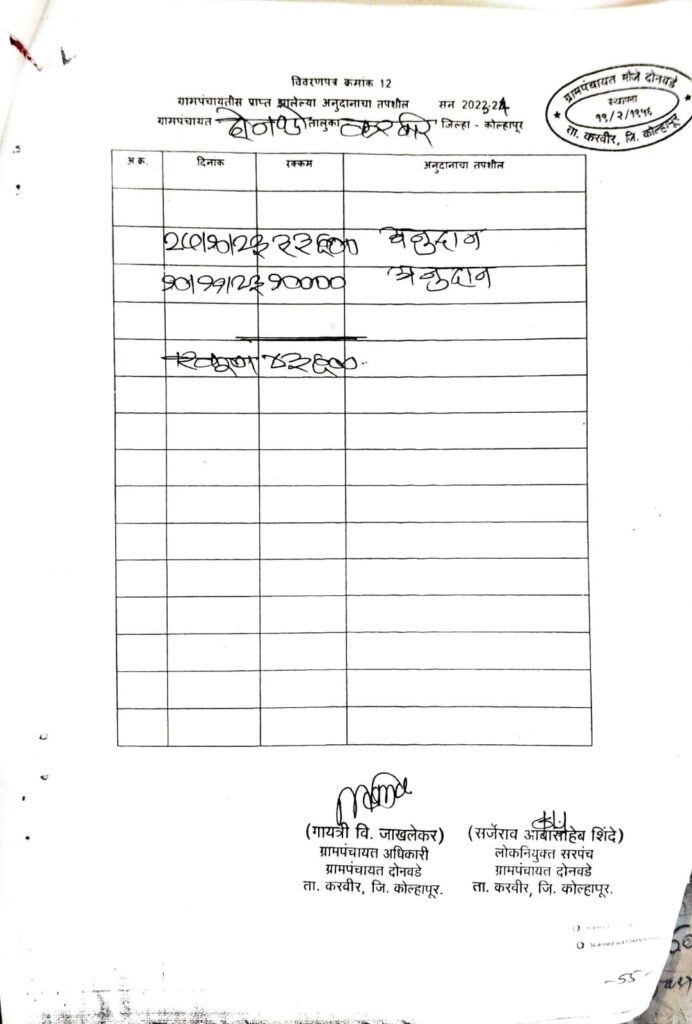 विवरणपत्र क्रमांक 12
ग्रामपंचायतीस प्राप्त झालेल्या अनुदानाचा तपशील सन 2023-24
ग्रामपंचायत दोनवडे तालुका करवीर जिल्हा - कोल्हापूर
ग्रामपंचायत मौजे दोनवडे
स्थापना
१९/२/१९५६
ता. करवीर, जि. कोल्हापूर
अ.क्र. दिनांक रक्कम अनुदानाचा तपशील
अनुदान
१०/११/२३ १०००० अनुदान
एकूण
(गायत्री वि. जाखलेकर) (सर्जेराव आबासाहेब शिंदे)
ग्रामपंचायत अधिकारी लोकनियुक्त सरपंच
ग्रामपंचायत दोनवडे ग्रामपंचायत दोनवडे
ता. करवीर, जि. कोल्हापूर. ता. करवीर, जि. कोल्हापूर.
-55-